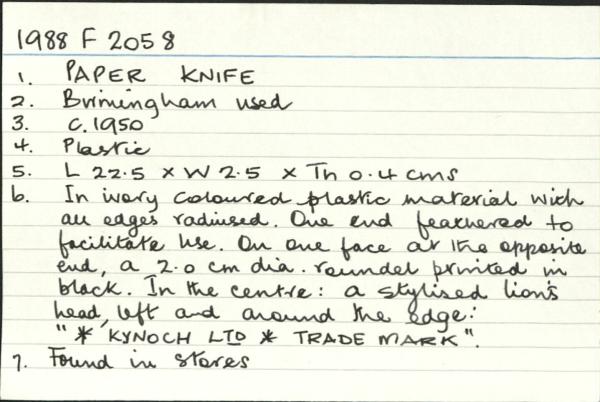 1988 F 2058
1. PAPER KNIFE
2. Birmingham used
3. c. 1950
4. Plastic
5. L 22.5 x W 2.5 x Th 0.4 cms
6. In ivory coloured plastic material with
all edges radiused. One end feathered to
facilitate use. On one face at the opposite
end, a 2.0 cm dia. roundel printed in
black. In the centre: a stylised lion's
head, left and around the edge:
"* KYNOCH LTD * TRADE MARK".
7. Found in stores